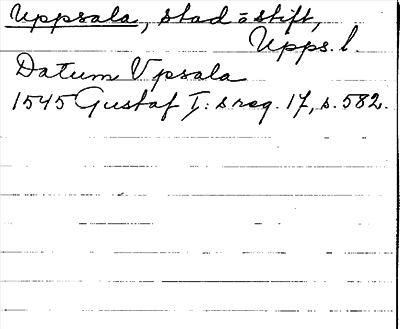 Uppsala, stad o stift,
Upps. l.
Datum Vpsala
1545 Gustaf I:s reg. 17, s. 582.